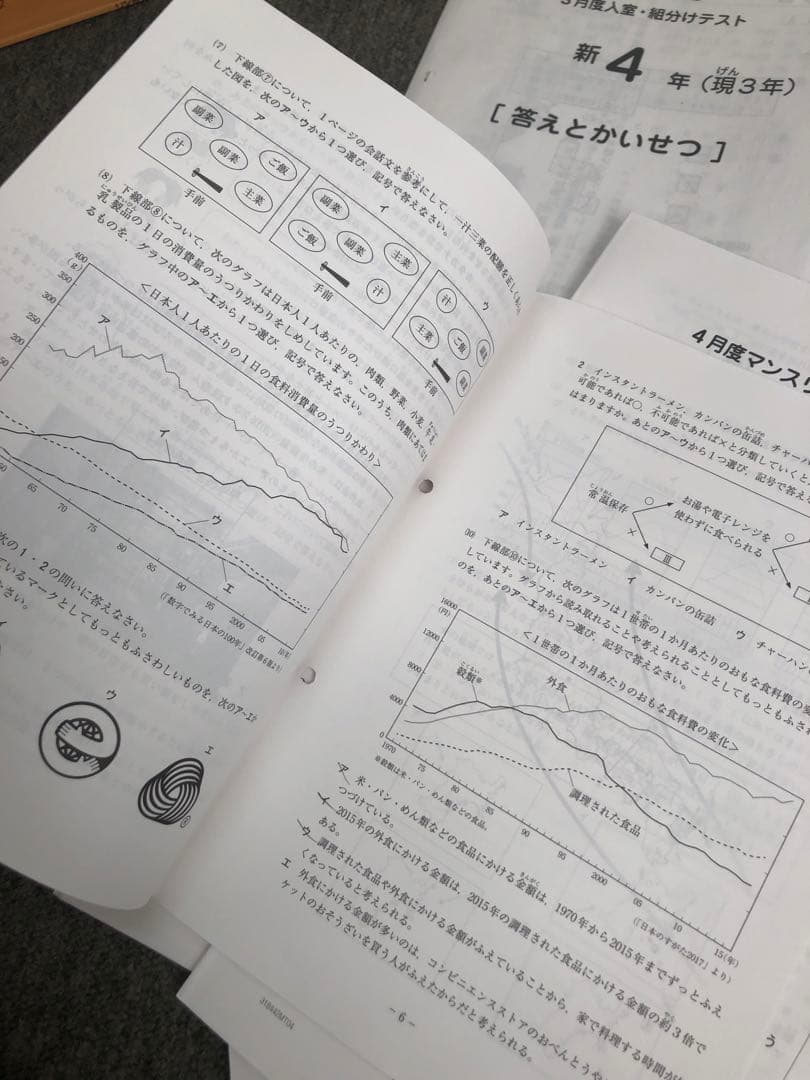 3月度入室・組分けテスト
新4年(現3年)
げん
[ 答えとかいせつ ]
(7) 下線部⑦について、1ページの会話文を参考にして、一汁三菜の配膳を正しくあ
した図を、次のア〜ウから1つ選び、記号で答えなさい。
ア
副菜
汁
副菜
ご飯
主菜
手前
イ
副菜
ご飯
副菜
主菜
汁
手前
ウ
汁
主菜
ご飯
副菜
副菜
手前
(8) 下線部⑧について、次のグラフは日本人1人あたりの、肉類、野菜、小麦、
にゅうせいひん
乳製品の1日の消費量のうつりかわりをしめしています。このうち、肉類にあては
るものを、グラフ中のア〜エから1つ選び、記号で答えなさい。
<日本人1人あたりの1日の食料消費量のうつりかわり>
400
(g)
350
300
250
200
ア
イ
ウ
エ
65
70
75
80
85
90
95
2000
05
10(年)
(「数字でみる日本の100年」改訂第6版より)
次の1・2の問いに答えなさい。
ているマークとしてもっともふさわしいものを、次のア〜エか
さい。
イ
ウ
エ
4月度マンスリ
2 インスタントラーメン、カンパンの缶詰、チャーハ
可能であれば○、不可能であれば×と分類していくと、
はまりますか。あとのア〜ウから1つ選び、記号で答え
じょうおん
常温保存
○
×
お湯や電子レンジを
使わずに食べられる
○
×
Ⅲ
ア インスタントラーメン イ カンパンの缶詰 ウ チャーハン
⑽ 下線部⑩について、次のグラフは1世帯の1か月あたりのおもな食料費の変
しています。グラフから読み取れることや考えられることとしてもっともふさわ
のを、あとのア〜エから1つ選び、記号で答えなさい。
<1世帯の1か月あたりのおもな食料費の変化>
16000
(円)
12000
8000
4000
0
こくるい
穀類※
外食
調理された食品
1970
75
80
85
90
95
2000
05
10
15(年)
※穀類は米・パン・めん類などの食品。
(「日本のすがた2017」より)
ア 米・パン・めん類などの食品にかける金額は、1970年から2015年までずっとふえ
つづけている。
イ 2015年の外食にかける金額は、2015年の調理された食品にかける金額の約3倍で
ある。
ウ 調理された食品や外食にかける金額がふえていることから、家で料理する時間が
くなっていると考えられる。
エ 外食にかける金額が多いのは、コンビニエンスストアのおべんとうや
ケットのおそうざいを買う人がふえたからだと考えられる。
- 6 -
318442M104
う